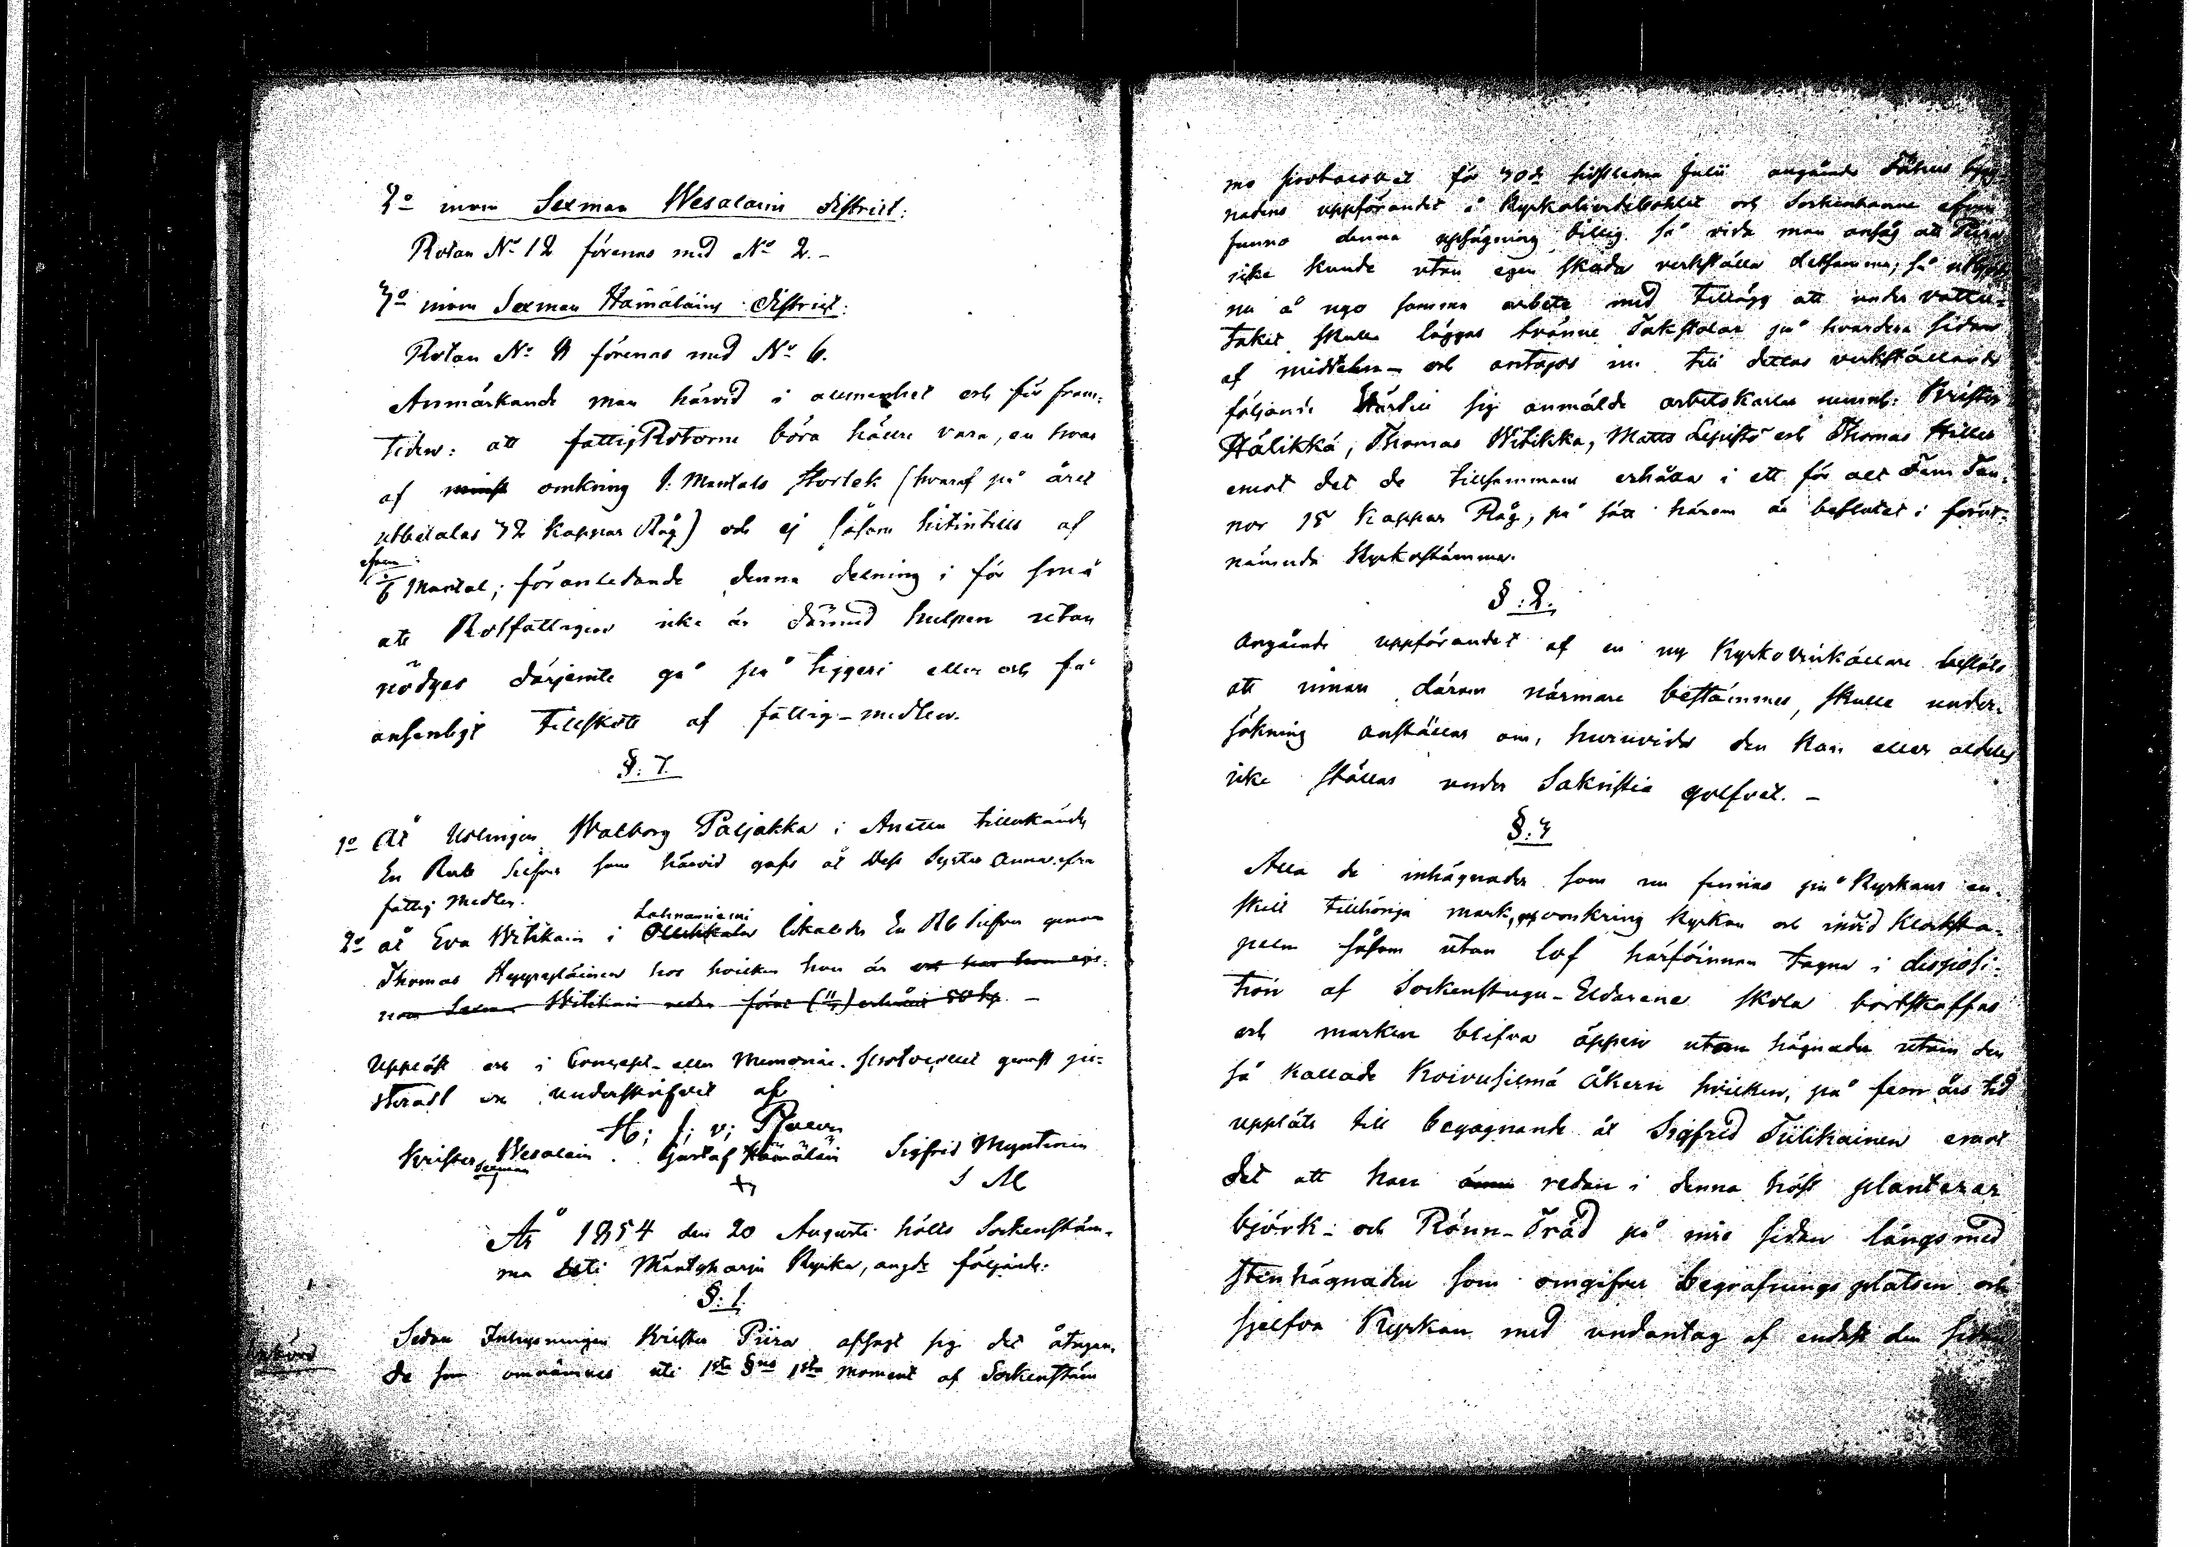 2o inom Sexman Wesalains District:
Rotan No 12 förenas med No 2.-
3o inom Sexman Hämäläins District:
Rotan No 8 förenas med No 6.
Anmärkande man härvid i allmenhet och för fram-
tiden: att fattigRotorne böra hällre vara, en hvar
af minst omkring 1. Mantals storlek (hvaraf på året
utbetalas 32 kappar Råg) och ej såsom hitintills af
1/6 Mantal; föranledande denna delning i för små
att Rotfattigen icke är därmed hulpen utan
nödgas därjemte gå på tiggeri eller och få
ansenligt Tillskott af fattig-medlen.
§. 7.
1o At Uslingen Walborg Paljakka i Anttila tillerkändes
En Rub Silfver som härvid gafs åt Dess Syster Anna
fattig Medlen.
Lahnaniemi
2o åt Eva Witikain i likaledes En Rb Silfver genom
Thomas Heppepläinen hos hvilken hon är och har hon
nom Sexman Witikain redan förut erhållit 50 kp. -
Uppläst och i Concept- eller Memorial-protocollet genast ju-
steradt och underskrifvet af
H; J; v; Pfaler
Krister Wesalain Gustaf Hämäläin Sigfrid Myntinin
Sexman
S M
År 1854 den 20 Augusti hölts Sockenstäm-
ma uti Mäntyharju Kyrka, angde följande:
§. 1.
Sedan Inhysningen Krister Piira afsagt sig det åtagan-
de som omnämnes uti 1sta §ns 1sta moment af Sockenstäm
mo protocollet för 30de sistledne Julii angående Fähus bygg-
nadens uppförandet i Kyrkoherdebohlet och Sockenboerne
funno denna uppsägning billig så vida man ansåg att Piira
icke kunde utan egen skada verkställa detsamma; så utbjöds
nu å nyo samma arbete med tillägg att under vattu-
taket skulle läggas tvänne Takstolar på hvardera sidan
af midtelen - och antagos nu till dettas verkställande
följande härtill sig anmälde arbetskarlar nemnl: Krister
Hälikkä, Thomas Witikka, Matts Lepistö och Thomas Hilles
emot det de tillsammans erhålla i ett för allt Fem Tun-
nor 15 Kappar Råg, på sätt härom är beslutat i förut-
nämnda Kyrkostämma.
§. 2.
Angående uppförandet af en ny Kyrkovinkällare beslöts
att innan därom närmare bestämmes, skulle under-
sökning anställas om, huruvida den kan eller aldeles
icke ställas under Sakristie golfvet. -
§. 3
Alla de inhägnader som nu finnas på Kyrkans en-
skilt tillhöriga mark, omkring Kyrkan och invid Klocksta-
peln såsom utan lof härförinnan tagna i disposi-
tion af Sockenstugu-Eldarene skola bortskaffas
och marken blifva öppen utom hägnader utom den
så kallade Koivusilmä Åkern hvilken, på fem års tid
uppläts till begagnande åt Sigfrid Tiilikainen emot
det att han ännu redan i denna höst planterar
björk- och Rönn-Träd på inre sidan längs med
stenhägnaden som omgifver begrafnings platsen och
sjelfva Kyrkan med undantag af endast den sidan